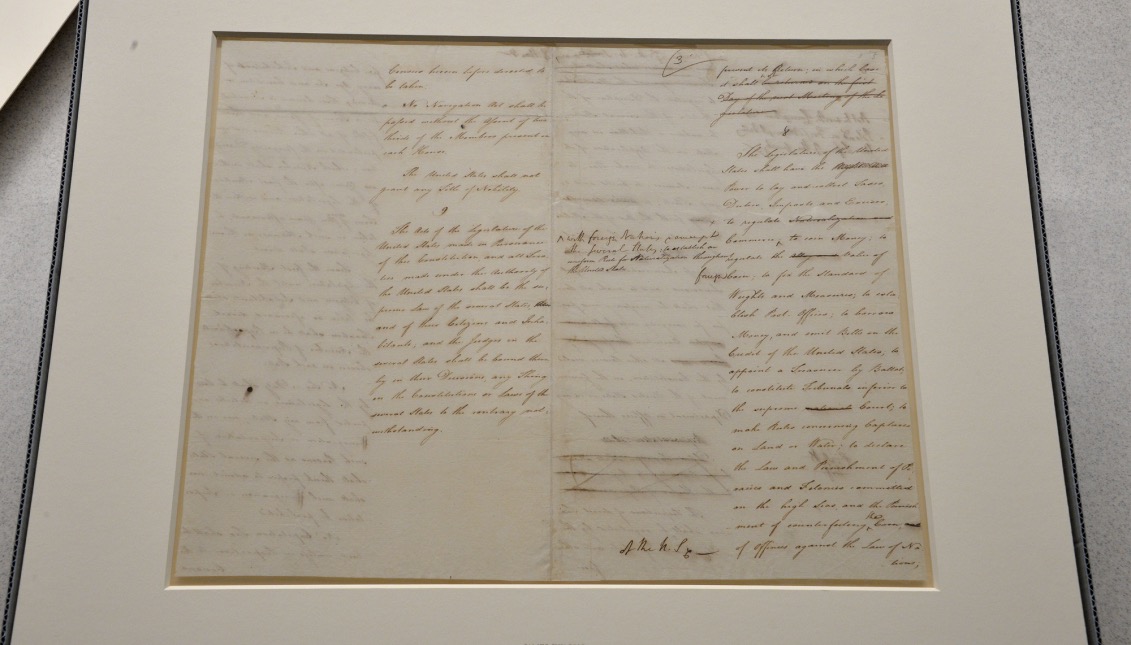 Census herein before directed to
be taken.
No Navigation Act shall be
passed without the Assent of two
thirds of the Members present in
each House.
The United States shall not
grant any Title of Nobility.
9
The Acts of the Legislature of the
United States made in Pursuance
of this Constitution and all Trea
ties made under the Authority of
the United States shall be the su,
preme Law of the several States,
and of their Citizens and Inha
bitants; and the Judges in the
several States shall be bound there
by in their Decisions, any Thing
in the Constitutions or Laws of the
several States to the contrary not,
withstanding.
3
prevent it Return; in which Case
it shall
Day of the next Meeting of the Le
gislature
8
The Legislature of the United
States shall have the
Power to lay and collect Taxes
Duties, Imposts, and Excises
to regulate Naturalization and
Commerce to coin Money; to
regulate the Value of
foreign Coin; to fix the Standard of
Weights and Measures; to esta
blish Post-Offices; to borrow
Money, and emit Bills on the
Credit of the United States; to
appoint a Treasurer by Ballot;
to constitute Tribunals inferior to
the supreme Court; to
make Rules concerning Captures
on Land or Water; to declare
the Law and Punishment of Pi
racies and Felonies committed
on the high Seas, and the Punish
ment of counterfeiting the Coin,
of Offences against the Law of Na
tions;
with foreign Nations & amongst
the several States; to establish an
uniform Rule for Naturalization throughout
the United States
of the U. S.